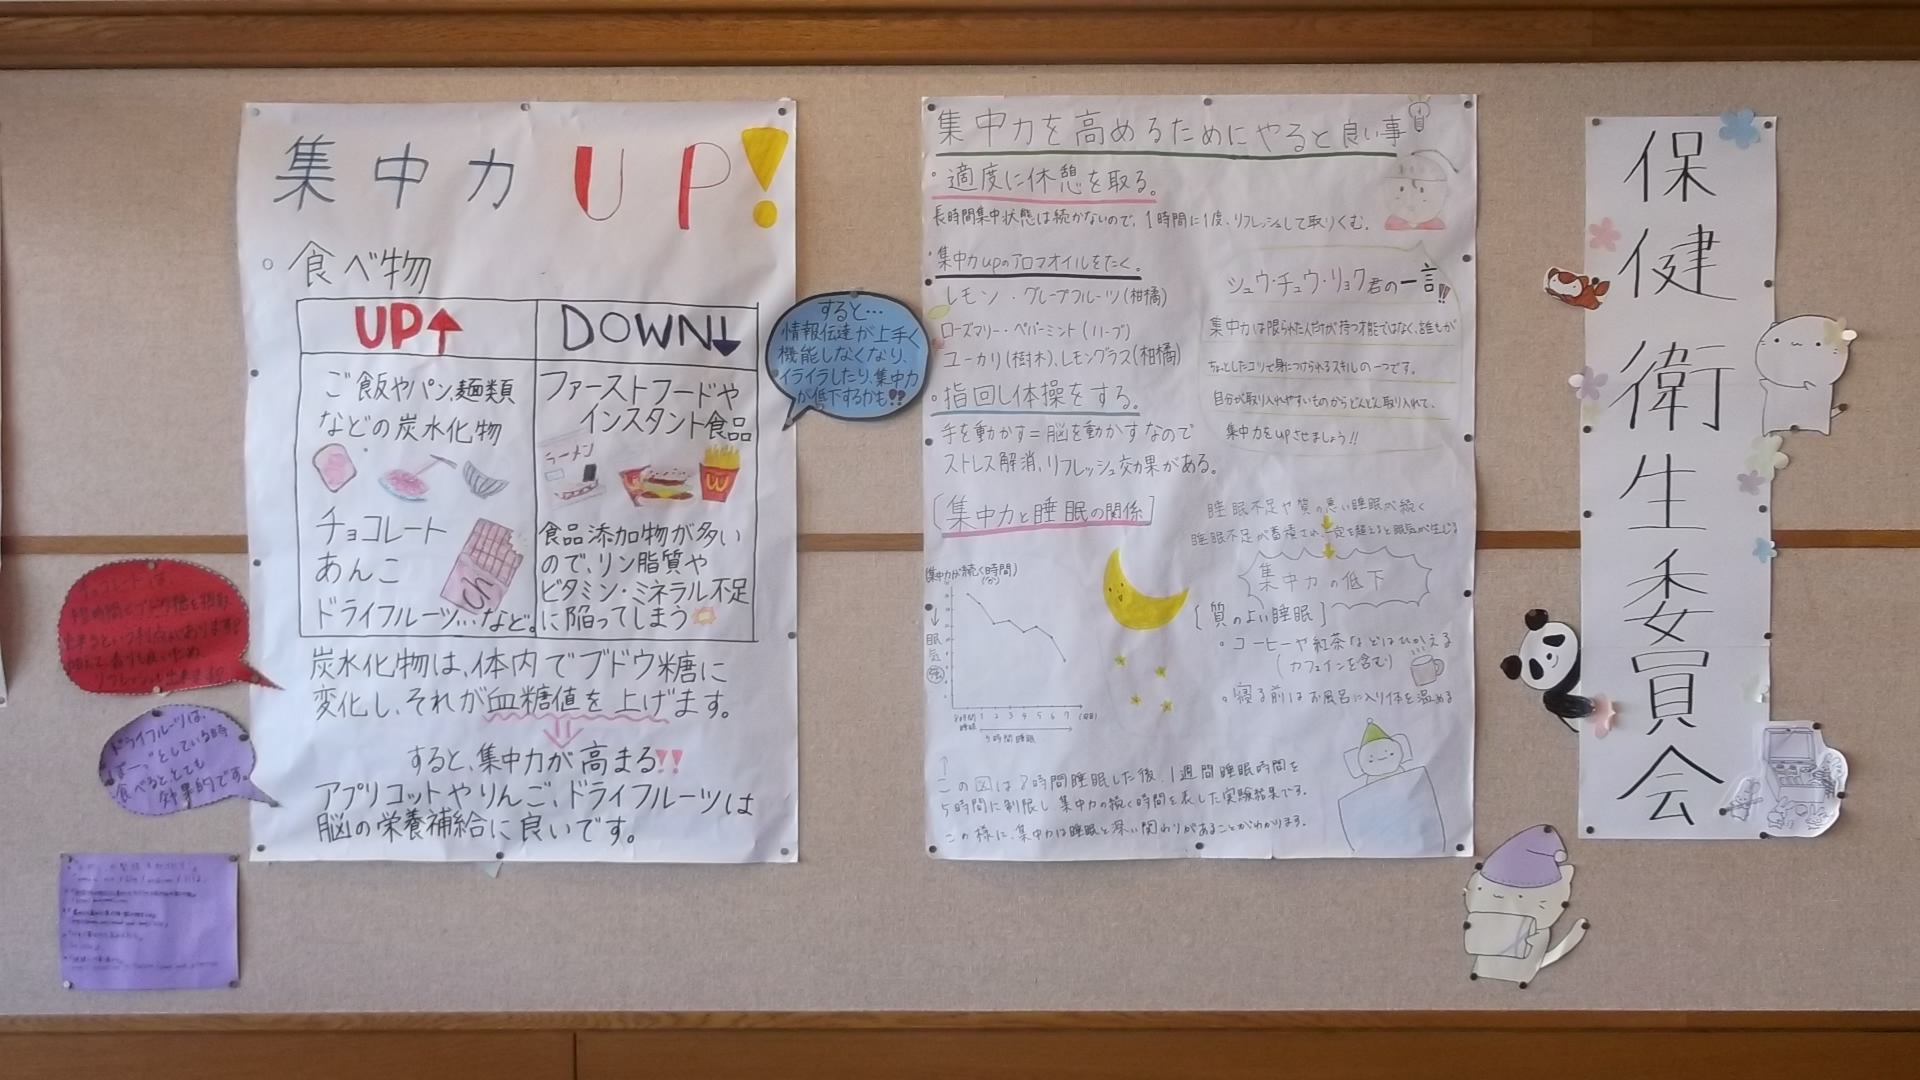 集中力UP!
食べ物
UP↑
DOWN↓
ご飯やパン、麺類
などの炭水化物
チョコレート
あんこ
ドライフルーツ…など。
ファーストフードや
インスタント食品
ラーメン
食品添加物が多い
ので、リン脂質や
ビタミン・ミネラル不足
に陥ってしまう
炭水化物は、体内でブドウ糖に
変化し、それが血糖値を上げます。
すると、集中力が高まる!!
アプリコットやりんご、ドライフルーツは
脳の栄養補給に良いです。
すると…
情報伝達が上手く
機能しなくなり、
イライラしたり、集中力
が低下するかも!?
チョコレートは
ドライフルーツは、
ぼーっとしている時
食べると、とても
効果的です。
集中力を高めるためにやると良い事
・適度に休憩を取る。
長時間集中状態は続かないので、1時間に1度、リフレッシュして取りくむ。
・集中力upのアロマオイルをたく。
レモン・グレープフルーツ(柑橘)
ローズマリー・ペパーミント(ハーブ)
ユーカリ(樹木)、レモングラス(柑橘)
・指回し体操をする。
手を動かす=脳を動かすなので
ストレス解消、リフレッシュ効果がある。
シュウ・チュウ・リョク君の一言!!
集中力は限られた人だけが持つ才能ではなく、誰もが
ちょっとしたコツで身につけられるスキルの一つです。
自分が取り入れやすいものからどんどん取り入れて、
集中力をupさせましょう!!
[集中力と睡眠の関係]
集中力が続く時間
(分)
眠気
強
8時間
睡眠
1 2 3 4 5 6 7
5時間睡眠
睡眠不足や質の悪い睡眠が続く
睡眠不足が蓄積され、一定を超えると眠気が生じる
集中力の低下
[質のよい睡眠]
・コーヒーや紅茶などはひかえる
(カフェインを含む)
・寝る前はお風呂に入り体を温める
この図は8時間睡眠した後、1週間睡眠時間を
5時間に制限し集中力の続く時間を表した実験結果です。
この様に、集中力は睡眠と深い関わりがあることがわかります。
保健衛生委員会